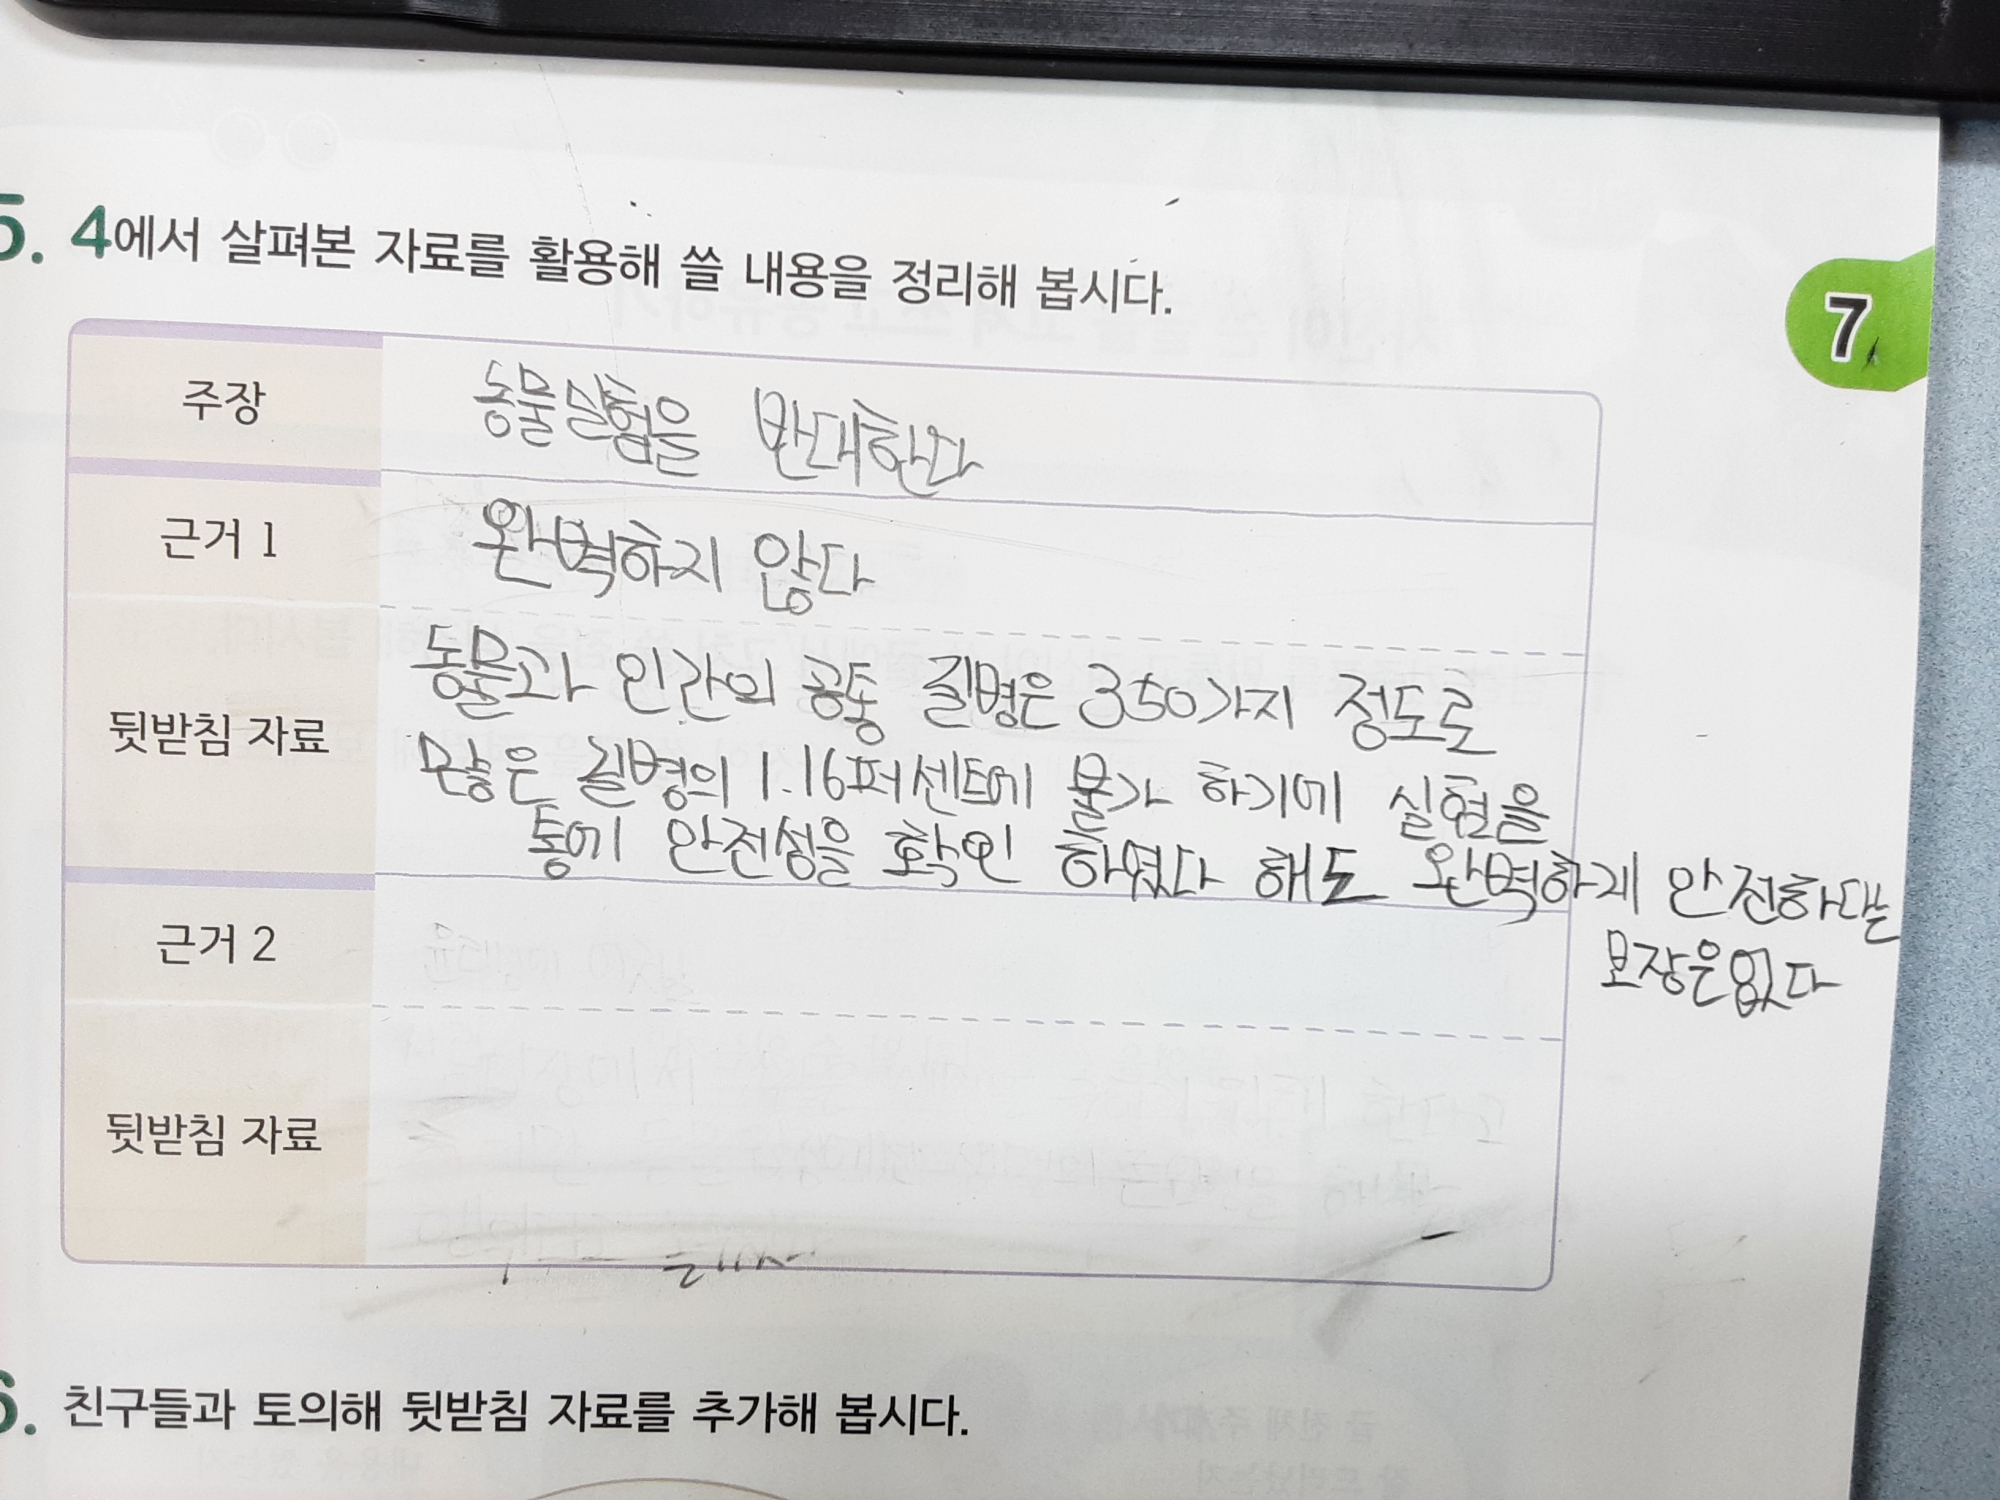 5. 4에서 살펴본 자료를 활용해 쓸 내용을 정리해 봅시다.
7
주장
동물실험을 반대한다
근거 1
완벽하지 않다
뒷받침 자료
동물과 인간의 공통 질병은 350가지 정도로
많은 질병의 1.16퍼센트에 불가 하기에 실험을
통에 안전성을 확인 하였다 해도 완벽하게 안전하다는
보장은없다
근거 2
뒷받침 자료
6. 친구들과 토의해 뒷받침 자료를 추가해 봅시다.